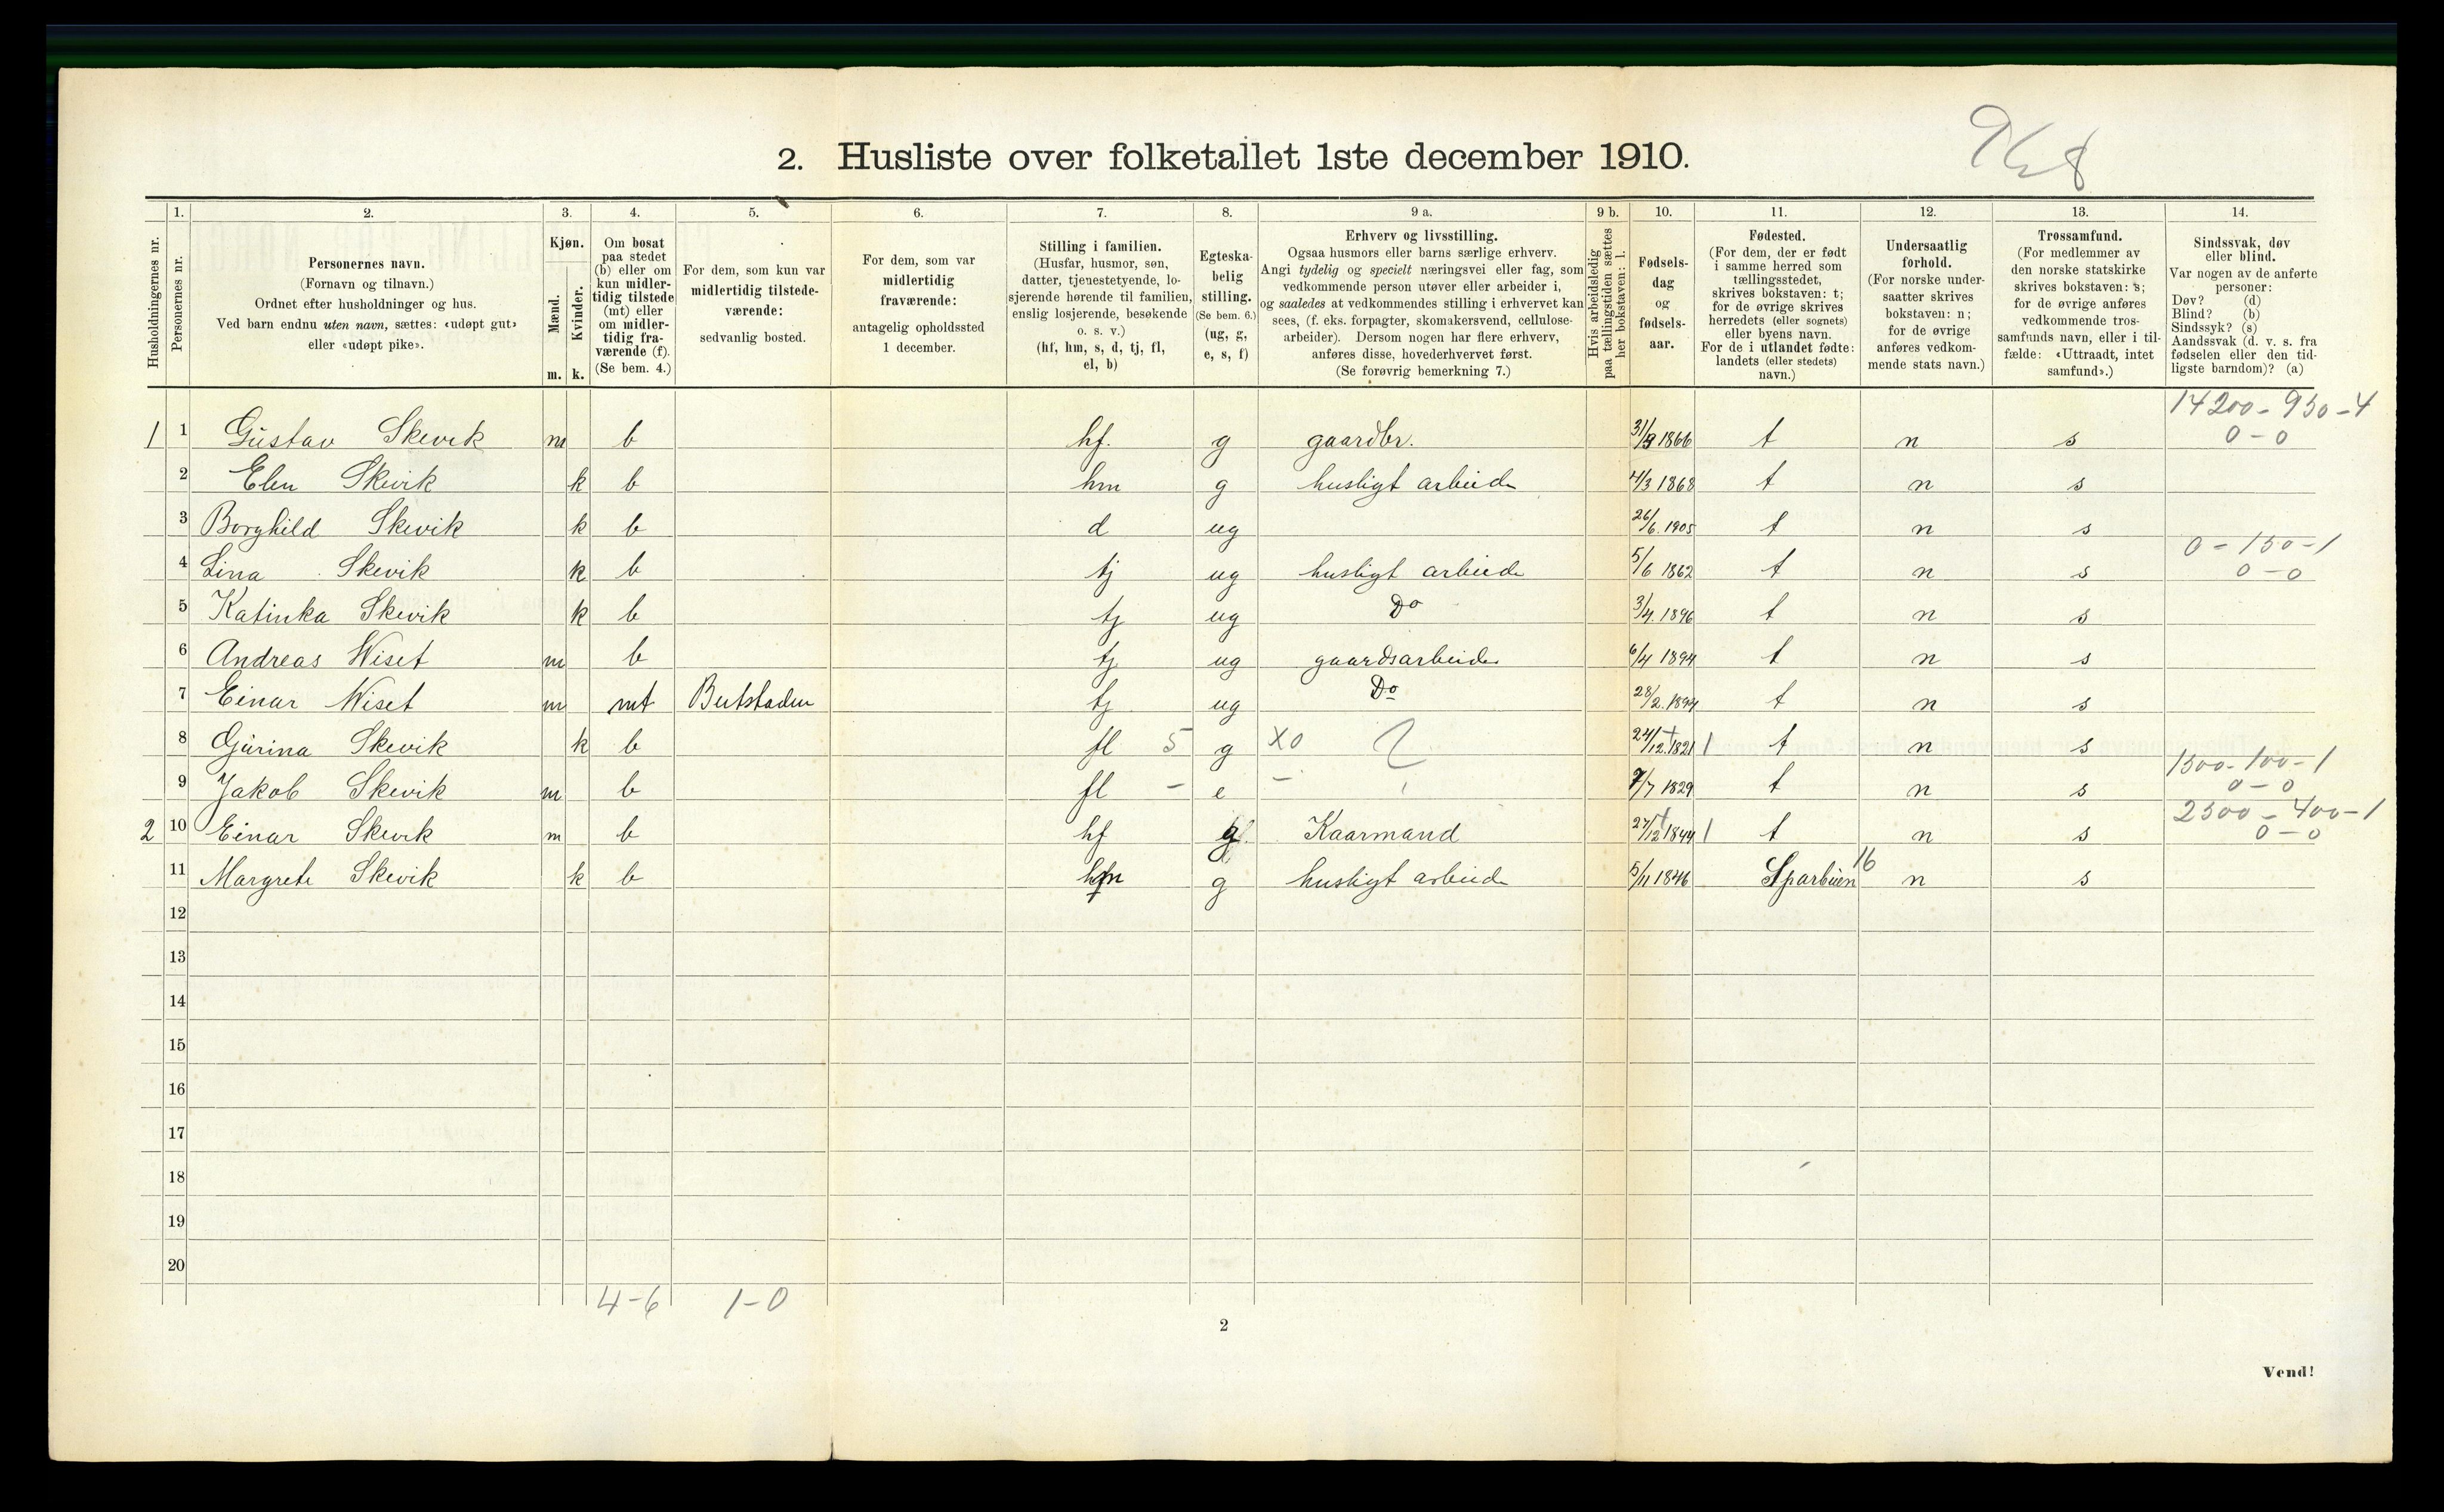 2. Husliste over folketallet 1ste december 1910.
Husholdningernes nr.
1.
Personernes nr.
2.
Personernes navn.
(Fornavn og tilnavn.)
Ordnet efter husholdninger og hus.
Ved barn endnu uten navn, sættes: «udøpt gut»
eller «udøpt pike».
3.
Kjøn.
Mænd.
Kvinder.
m. k.
4.
Om bosat
paa stedet
(b) eller om
kun midler-
tidig tilstede
(mt) eller
om midler-
tidig fra-
værende (f).
(Se bem. 4.)
5.
For dem, som kun var
midlertidig tilstede-
værende:
sedvanlig bosted.
6.
For dem, som var
midlertidig
fraværende:
antagelig opholdssted
1 december.
7.
Stilling i familien.
(Husfar, husmor, søn,
datter, tjenestetyende, lo-
sjerende hørende til familien,
enslig losjerende, besøkende
o. s. v.)
(hf, hm, s, d, tj, fl,
el, b)
8.
Egteska-
belig
stilling.
(Se bem. 6.)
(ug, g,
e, s, f)
9 a.
Erhverv og livsstilling.
Ogsaa husmors eller barns særlige erhverv.
Angi tydelig og specielt næringsvei eller fag, som
vedkommende person utøver eller arbeider i,
og saaledes at vedkommendes stilling i erhvervet kan
sees, (f. eks. forpagter, skomakersvend, cellulose-
arbeider). Dersom nogen har flere erhverv,
anføres disse, hovederhvervet først.
(Se forøvrig bemerkning 7.)
9 b.
Hvis arbeidsledig
paa tællingstiden sættes
her bokstaven: l.
10.
Fødsels-
dag
og
fødsels-
aar.
11.
Fødested.
(For dem, der er født
i samme herred som
tællingsstedet,
skrives bokstaven: t;
for de øvrige skrives
herredets (eller sognets)
eller byens navn.
For de i utlandet fødte:
landets (eller stedets)
navn.)
12.
Undersaatlig
forhold.
(For norske under-
saatter skrives
bokstaven: n;
for de øvrige
anføres vedkom-
mende stats navn.)
13.
Trossamfund.
(For medlemmer av
den norske statskirke
skrives bokstaven: s;
for de øvrige anføres
vedkommende tros-
samfunds navn, eller i til-
fælde: «Uttraadt, intet
samfund».)
14.
Sindssvak, døv
eller blind.
Var nogen av de anførte
personer:
Døv? (d)
Blind? (b)
Sindssyk? (s)
Aandssvak (d. v. s. fra
fødselen eller den tid-
ligste barndom)? (a)
14200 - 950 - 4
1 1 Gustav Skevik m b hf. g gaardbr. 31/3 1866 t n s 0 - 0
2 Elen Skevik k b hm g husligt arbeide 4/3 1868 t n s
3 Borghild Skevik k b d ug 26/6. 1905 t n s
0 - 150 - 1
4 Lina Skevik k b tj ug husligt arbeide 5/6 1862 t n s 0 - 0
5 Katinka Skevik k b tj ug Do 3/4. 1896 t n s
6 Andreas Wiset m b tj ug gaardsarbeide 6/4 1894 t n s
7 Einar Wiset m mt Butstaden tj ug Do 28/2. 1894 t n s
8 Gurina Skevik k b fl 5 g x0 24/12. 1821 1 t n s
1500 - 100 - 1
9 Jakob Skevik m b fl - e - 7/7 1829 t n s 0 - 0
2300 - 400 - 1
2 10 Einar Skevik m b hf g Kaarmand 27/12 1844 1 t n s 0 - 0
11 Margrete Skevik k b hm g husligt arbeide 5/11 1846 Sparbuen 16 n s
12
13
14
15
16
17
18
19
20
4 - 6 1 - 0
2
Vend!